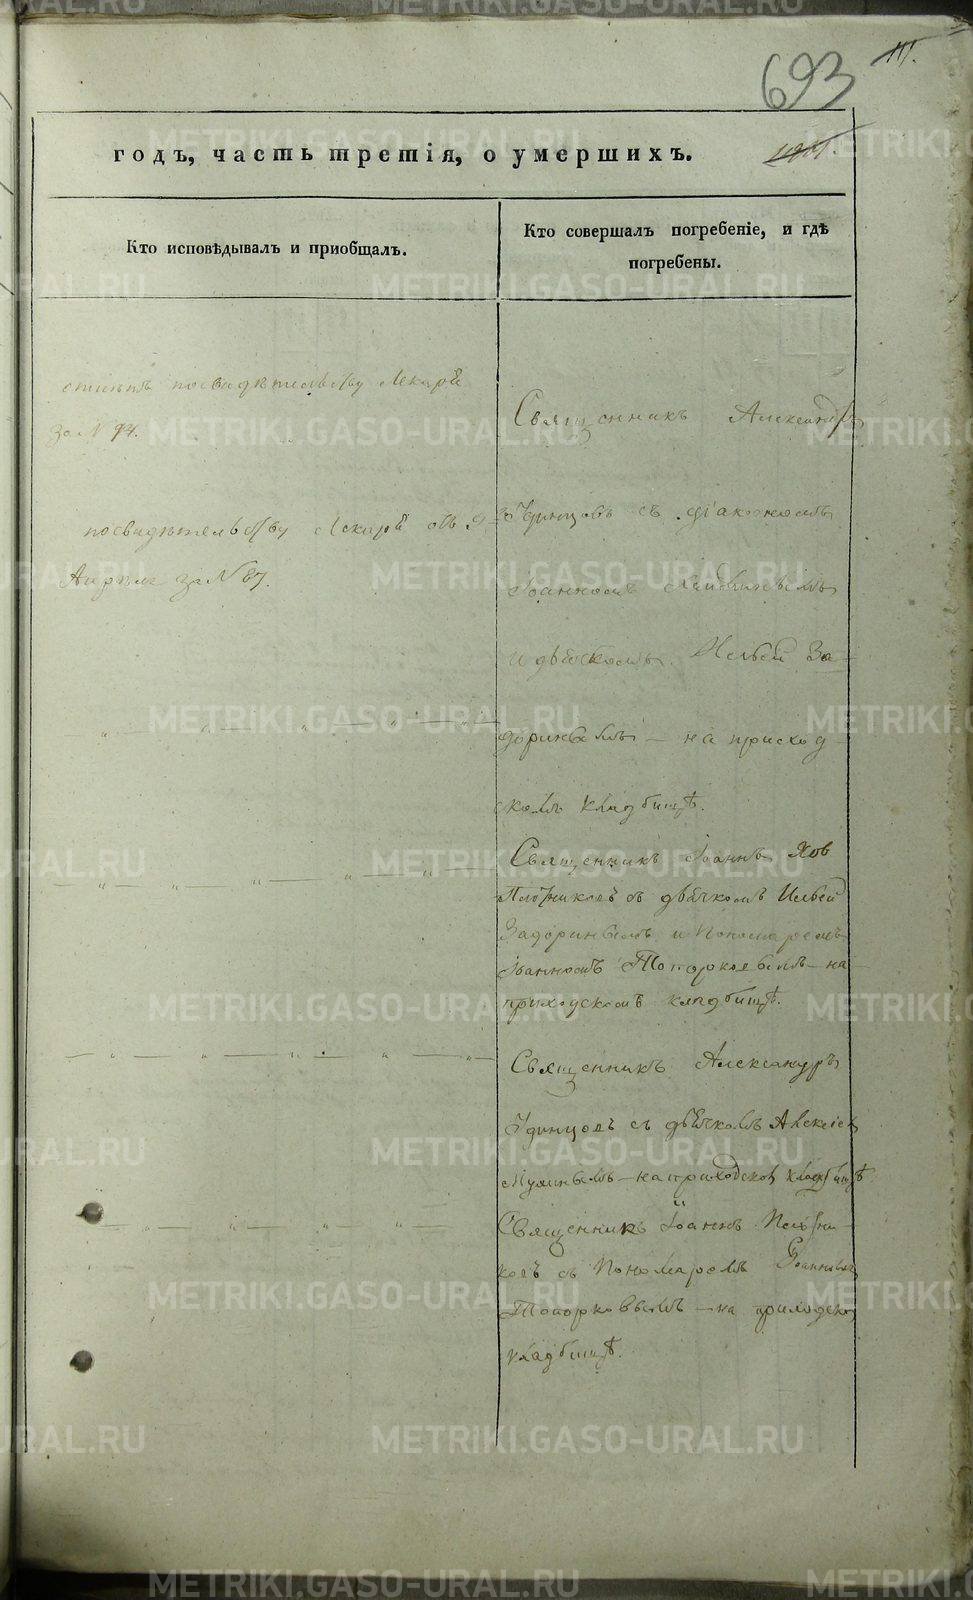 693
годъ, часть третія, о умершихъ.
Кто исповѣдывалъ и пріобщалъ.
Кто совершалъ погребеніе, и гдѣ
погребены.
посвидѣтельству Лекаря
за № 94.
Священникъ Александръ
посвидѣтельству Лекаря отъ
Удинцовъ съ діакономъ
Апрѣля за № 87.
Іоанномъ
и дьячкомъ Ильей За-
доринымъ – на приход-
скомъ кладбищѣ.
Священникъ Іоаннъ
Плотниковъ съ дьячкомъ Ильей
Задоринымъ и Пономаремъ
Іоанномъ Топорковымъ – на
приходскомъ кладбищѣ.
Священникъ Александръ
Удинцовъ съ дьячкомъ Алексіем
– на приходском кладбищѣ
Священникъ Іоаннъ Плотни-
ковъ съ Пономаремъ Іоанномъ
Топорковымъ – на приходском
кладбищѣ.
METRIKI.GASO-URAL.RU